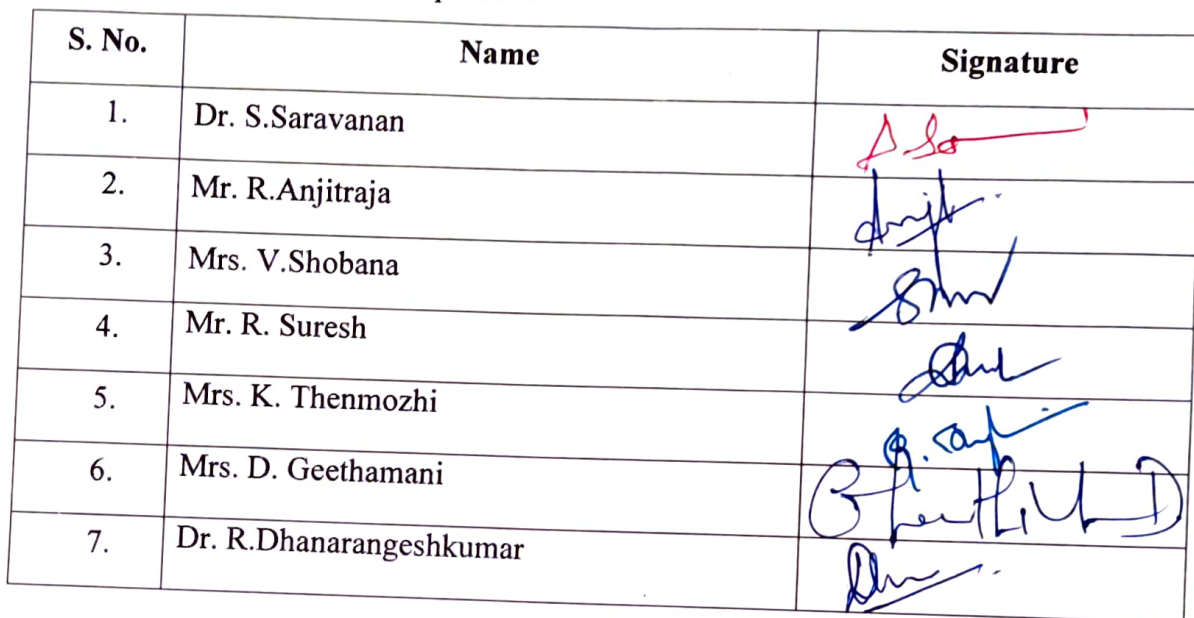 S. No. Name Signature
1. Dr. S.Saravanan
2. Mr. R.Anjitraja
3. Mrs. V.Shobana
4. Mr. R. Suresh
5. Mrs. K. Thenmozhi
6. Mrs. D. Geethamani
7. Dr. R.Dhanarangeshkumar